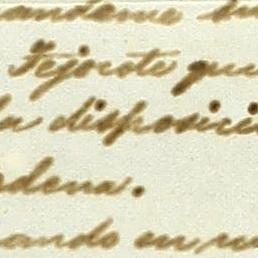 andome
Tejocote que
la disposici
dena.
ando en un